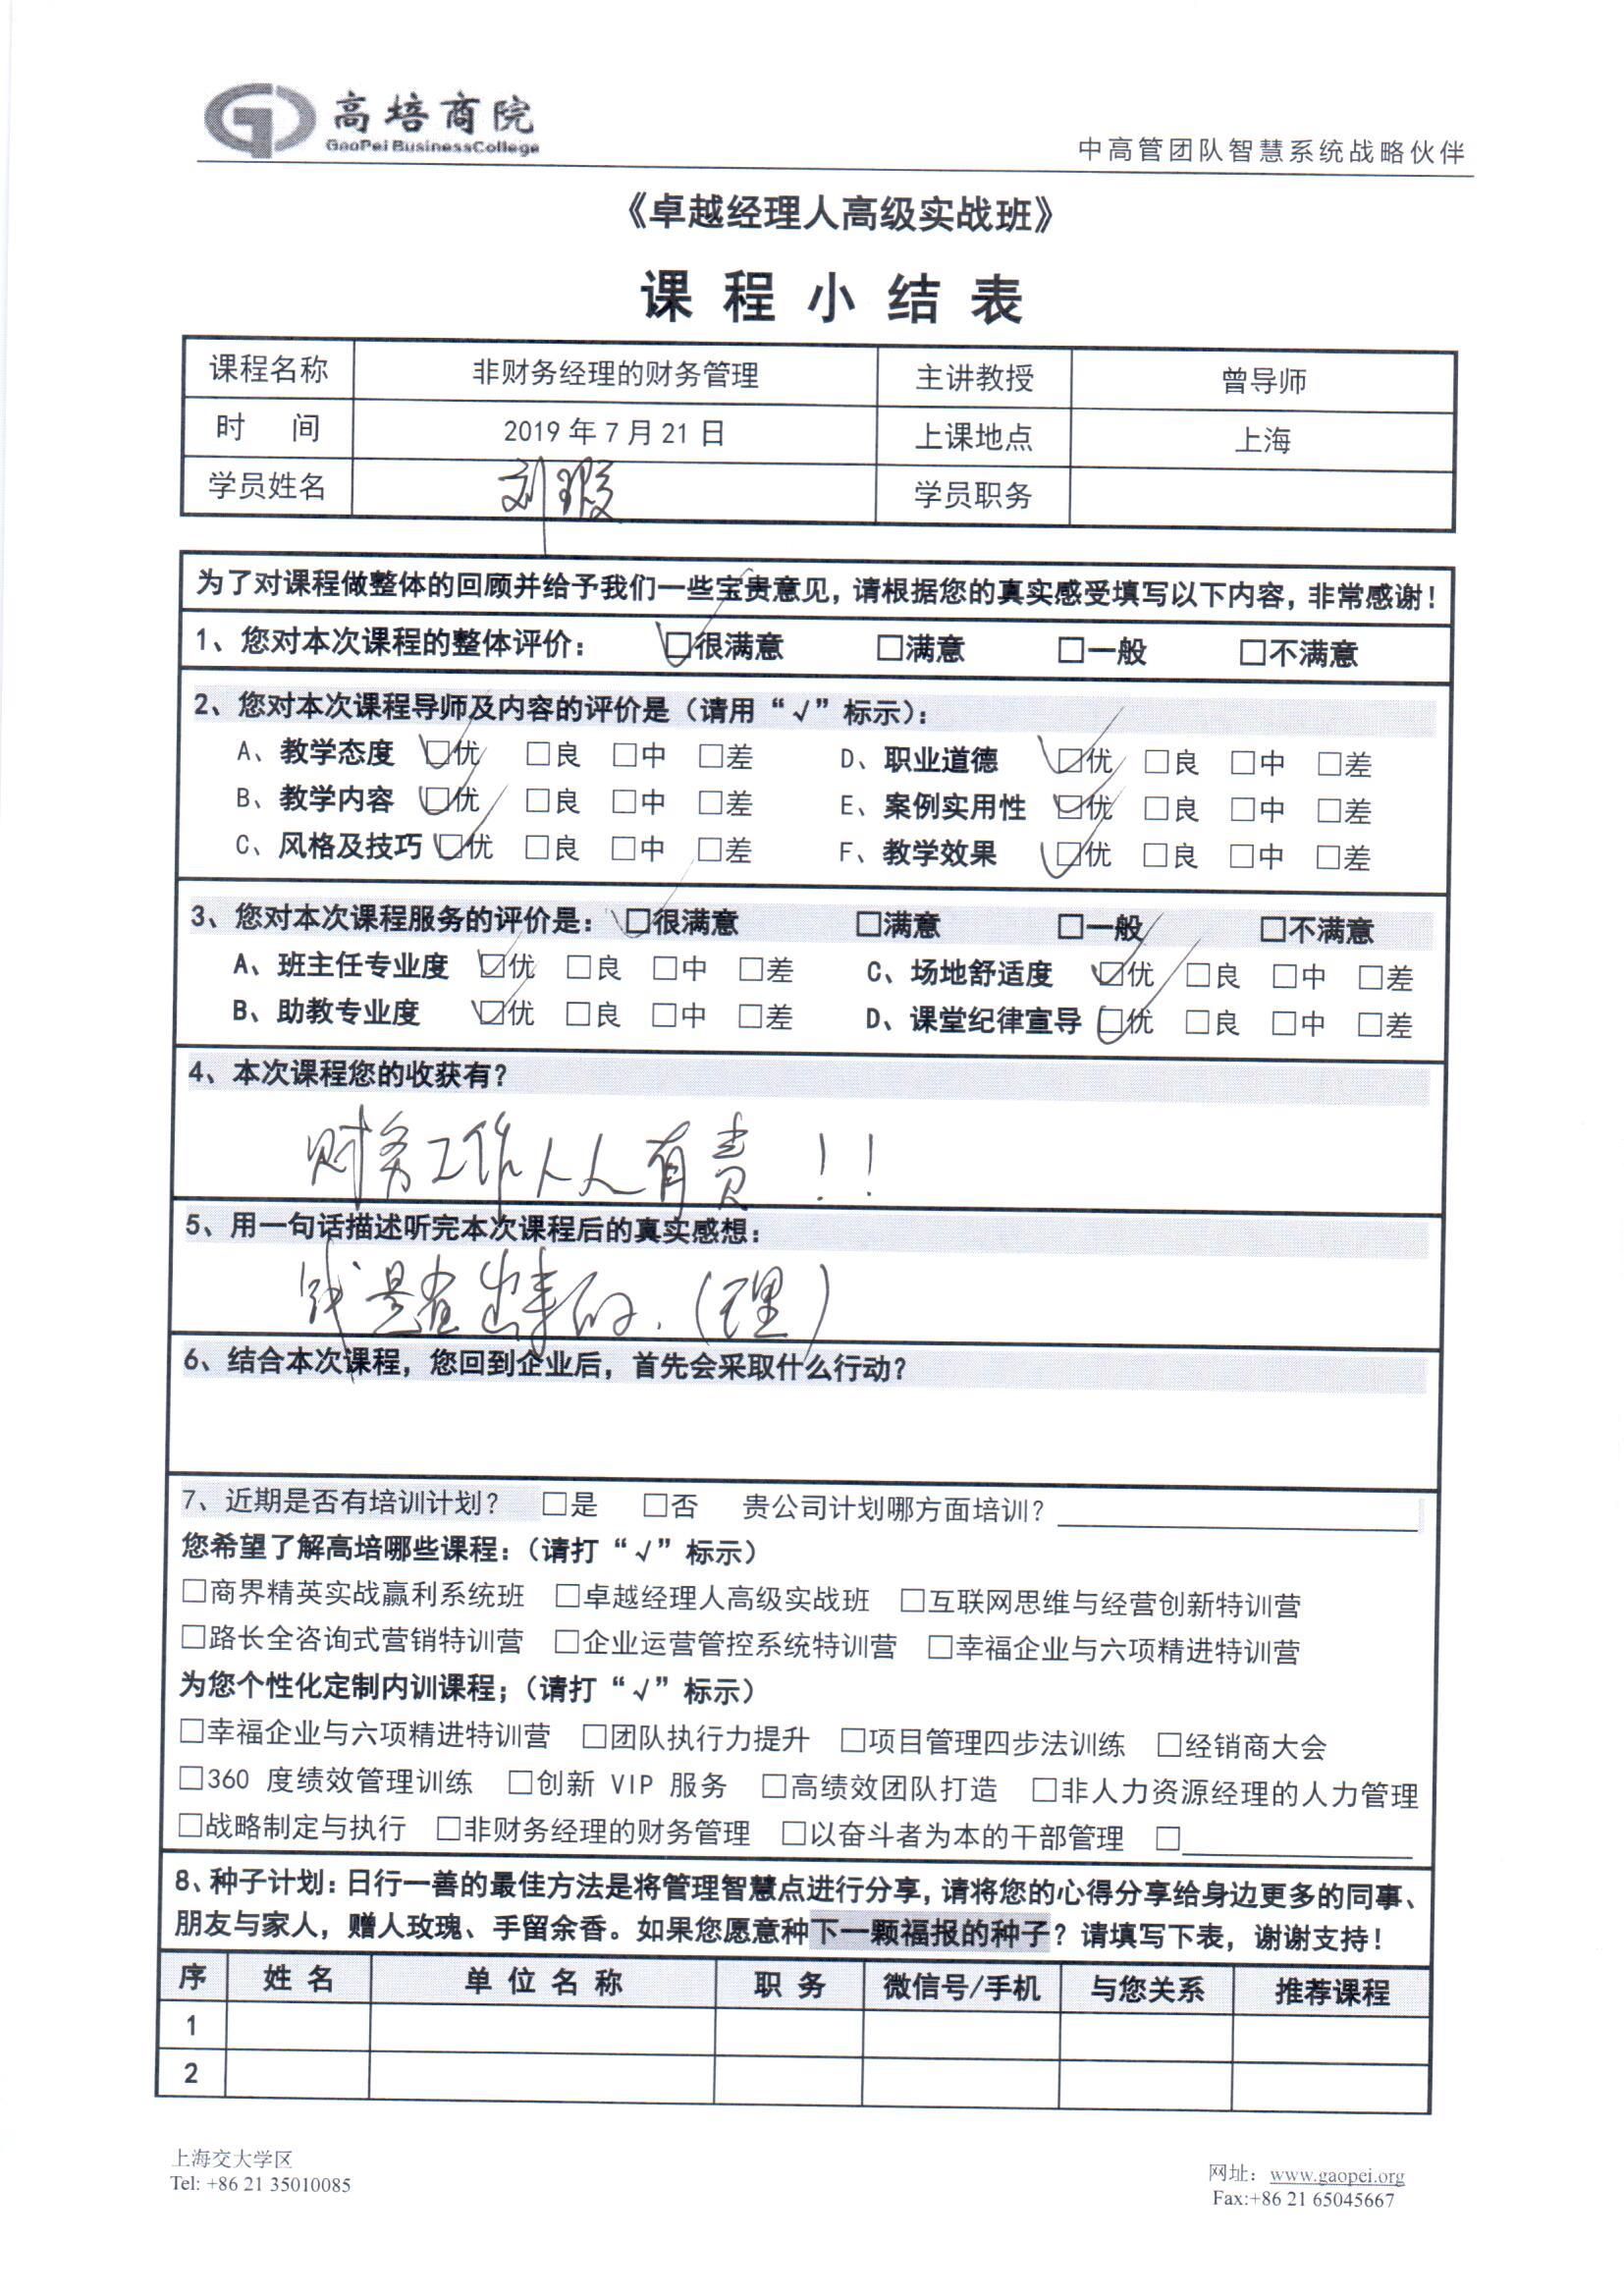 高培商院
GaoPei BusinessCollege
中高管团队智慧系统战略伙伴
《卓越经理人高级实战班》
课程小结表
课程名称 非财务经理的财务管理 主讲教授 曾导师
时 间 2019年7月21日 上课地点 上海
学员姓名 刘瑕 学员职务
为了对课程做整体的回顾并给予我们一些宝贵意见，请根据您的真实感受填写以下内容，非常感谢！
1、您对本次课程的整体评价： ☑很满意 □满意 □一般 □不满意
2、您对本次课程导师及内容的评价是（请用“√”标示）：
A、教学态度 ☑优 □良 □中 □差 D、职业道德 ☑优 □良 □中 □差
B、教学内容 ☑优 □良 □中 □差 E、案例实用性 ☑优 □良 □中 □差
C、风格及技巧 ☑优 □良 □中 □差 F、教学效果 ☑优 □良 □中 □差
3、您对本次课程服务的评价是： ☑很满意 □满意 □一般 □不满意
A、班主任专业度 ☑优 □良 □中 □差 C、场地舒适度 ☑优 □良 □中 □差
B、助教专业度 ☑优 □良 □中 □差 D、课堂纪律宣导 ☑优 □良 □中 □差
4、本次课程您的收获有？
财务工作人人有责！！
5、用一句话描述听完本次课程后的真实感想：
钱是管出来的.（理）
6、结合本次课程，您回到企业后，首先会采取什么行动？
7、近期是否有培训计划？ □是 □否 贵公司计划哪方面培训？
您希望了解高培哪些课程：（请打“√”标示）
□商界精英实战赢利系统班 □卓越经理人高级实战班 □互联网思维与经营创新特训营
□路长全咨询式营销特训营 □企业运营管控系统特训营 □幸福企业与六项精进特训营
为您个性化定制内训课程；（请打“√”标示）
□幸福企业与六项精进特训营 □团队执行力提升 □项目管理四步法训练 □经销商大会
□360 度绩效管理训练 □创新 VIP 服务 □高绩效团队打造 □非人力资源经理的人力管理
□战略制定与执行 □非财务经理的财务管理 □以奋斗者为本的干部管理 □
8、种子计划：日行一善的最佳方法是将管理智慧点进行分享，请将您的心得分享给身边更多的同事、
朋友与家人，赠人玫瑰、手留余香。如果您愿意种下一颗福报的种子？请填写下表，谢谢支持！
序 姓名 单位名称 职务 微信号/手机 与您关系 推荐课程
1
2
上海交大学区
Tel: +86 21 35010085
网址：www.gaopei.org
Fax:+86 21 65045667